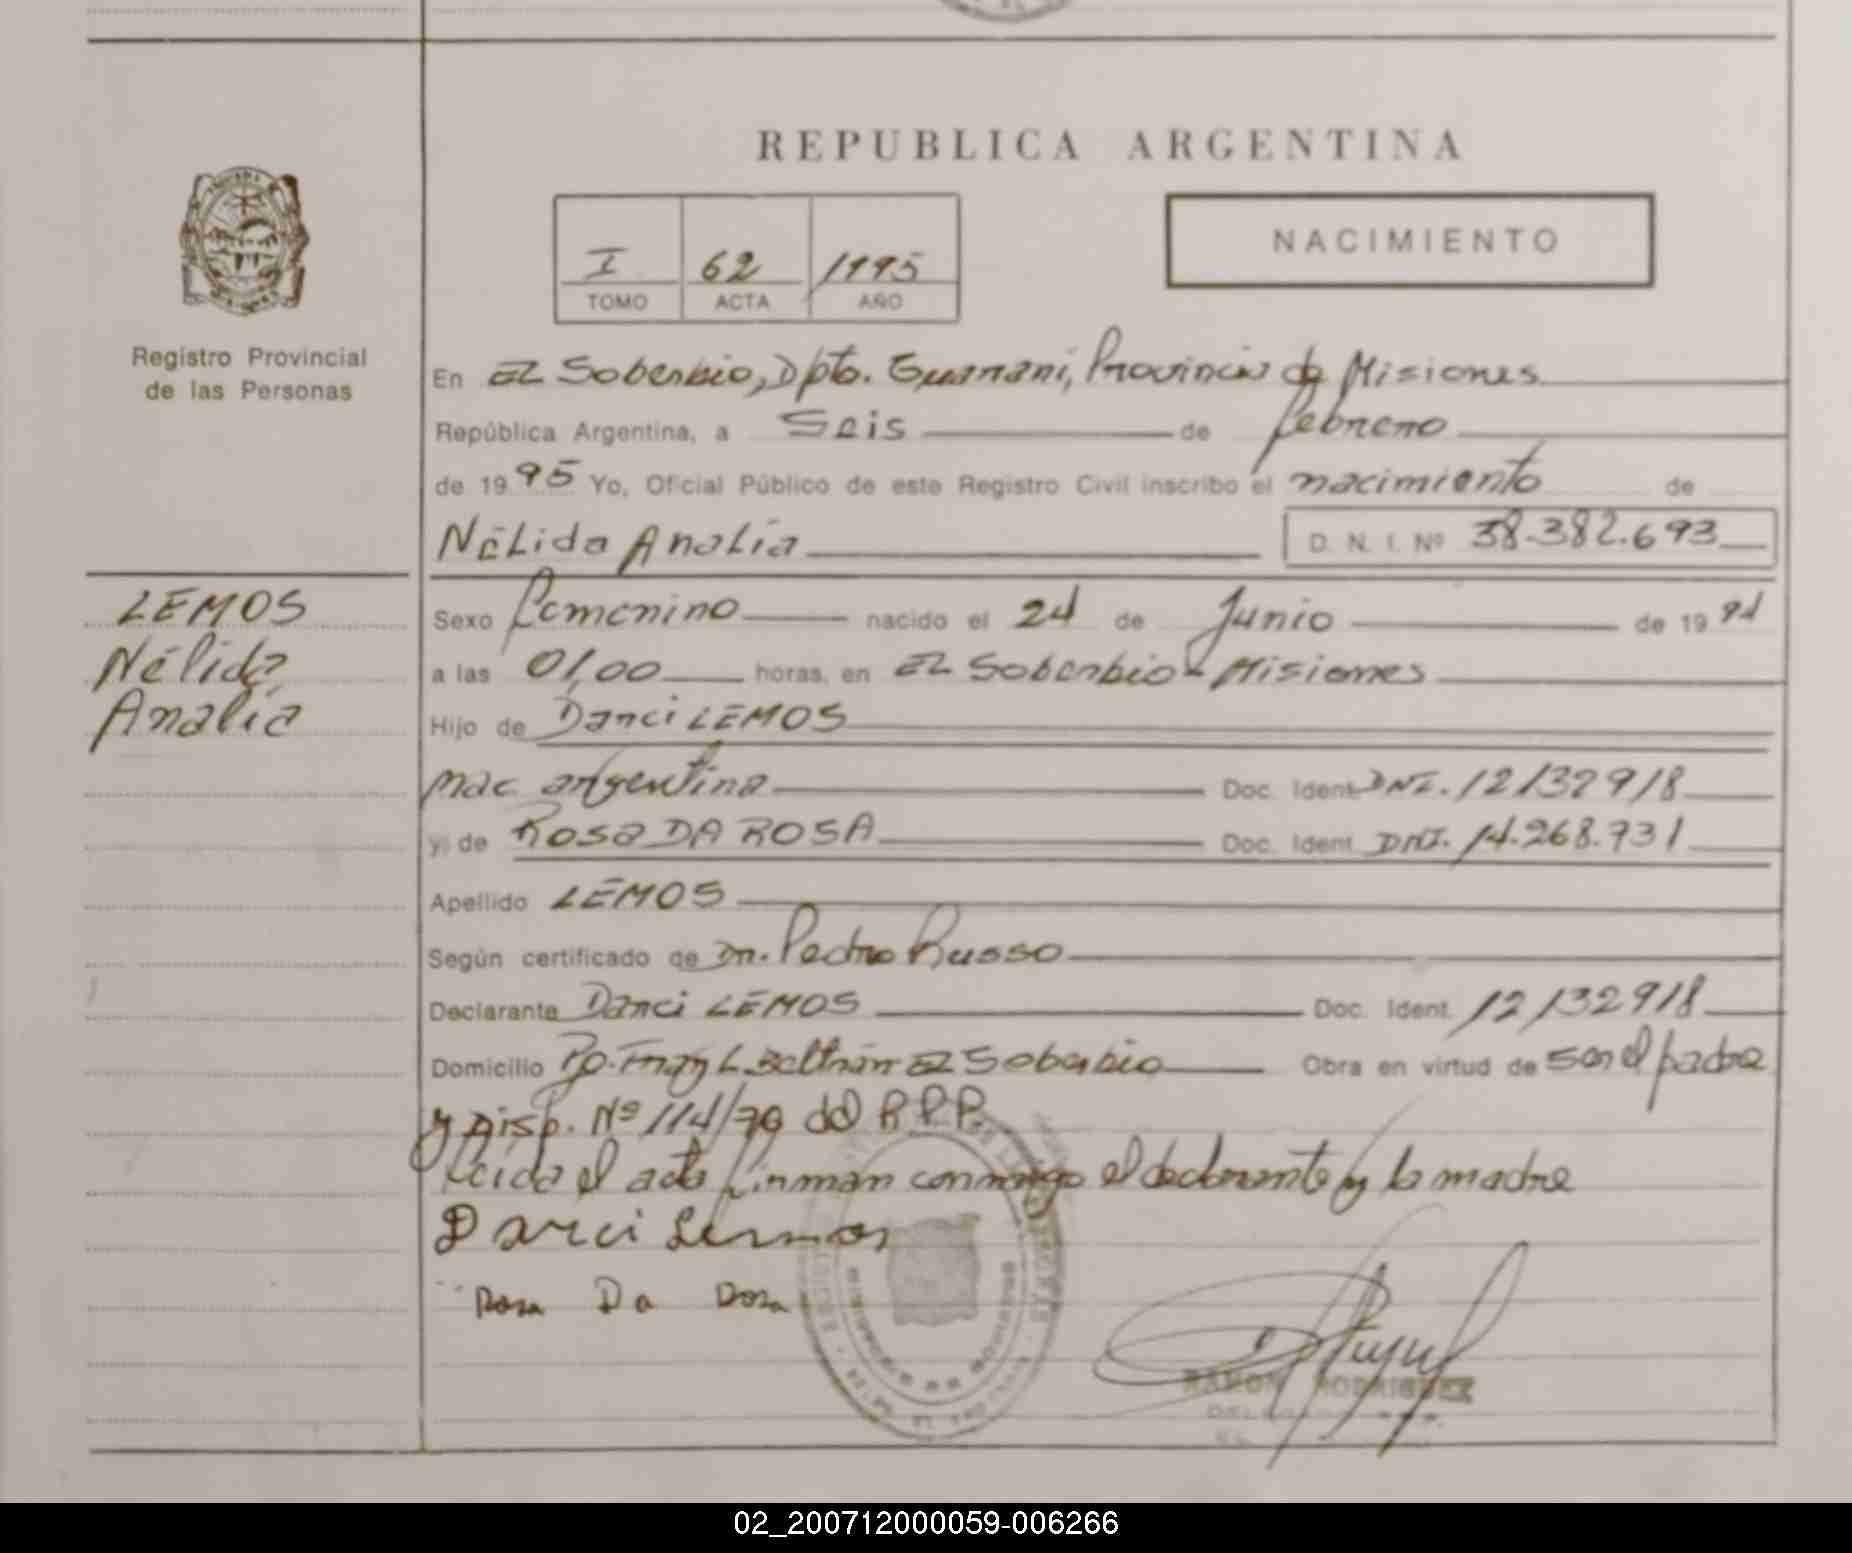 REPUBLICA ARGENTINA
NACIMIENTO
I 62 1995
TOMO ACTA AÑO
Registro Provincial
de las Personas
En EL Soberbio, Dpto. Guarani, Provincia de Misiones
República Argentina, a Seis de febrero
de 1995 Yo, Oficial Público de este Registro Civil inscribo el nacimiento de
Nélida Analía D. N. I. Nº 38.382.693
LEMOS
Nélida
Analía
Sexo femenino nacido el 24 de Junio de 1994
a las 01,00 horas, en EL Soberbio - Misiones
Hijo de Darci LEMOS
nac argentina Doc. Ident DNI. 12132918
y de Rosa DA ROSA Doc. Ident DNI. 14.268.731
Apellido LEMOS
Según certificado de Dr. Pedro Russo
Declarante Darci LEMOS Doc. Ident. 12132918
Domicilio Pje. Fray L Beltrán EL Soberbio Obra en virtud de ser el padre
y Disp. Nº 114/79 del R.P.P.
Leida el acta firman conmigo el declarante y la madre
Darci Lemos
Rosa Da Rosa
RAMON RODRIGUEZ
02_200712000059-006266